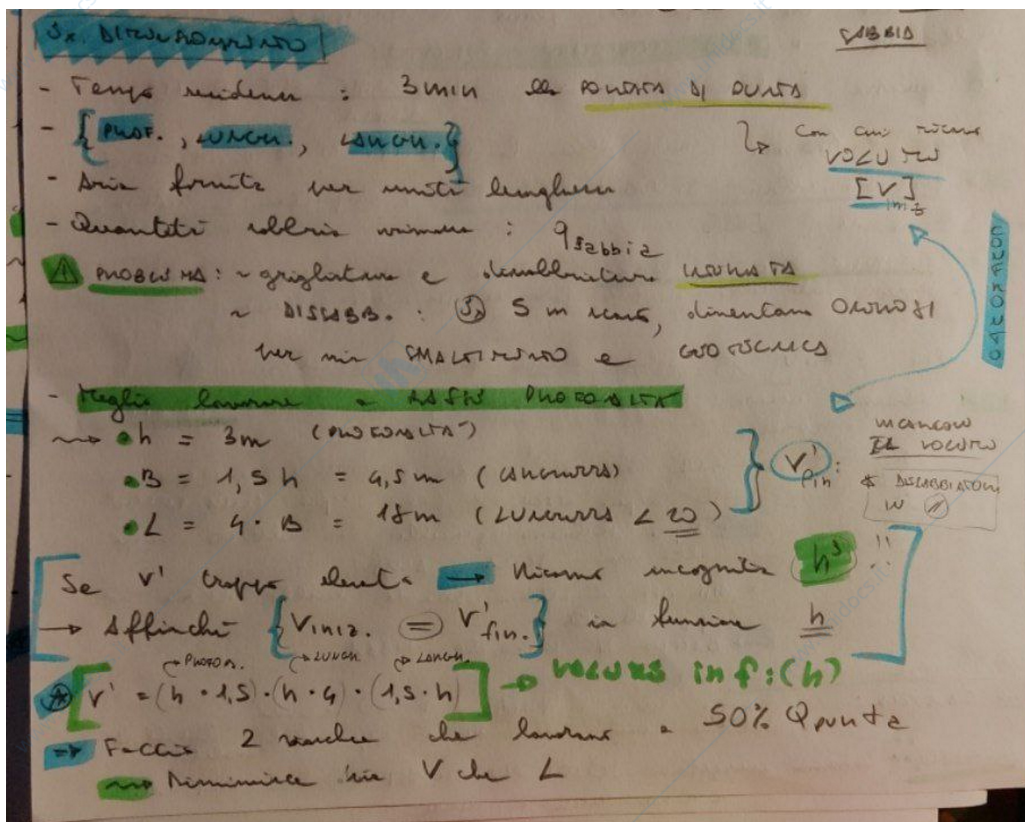 Ex. DIMENSIONAMENTO
SABBIA
- Tempo residenza : 3 min alla PORTATA DI PUNTA
- { PROF. , LUNGH. , LARGH. }
↳ Con cui ricavo
VOLUME
[V]
- Aria fornita per unità lunghezza
- Quantità sabbia rimossa : q sabbia
CONFRONTO
⚠ PROBLEMA : ~ grigliatura e dissabbiatura INTERRATA
~ DISSABB. : 5 m scavo, diventano ONEROSI
per mix SMALTIMENTO e GEOTECNICA
- Meglio lavorare a BASSE PROFONDITÀ
~> • h = 3m (PROFONDITÀ)
• B = 1,5 h = 4,5 m (LARGHEZZA)
• L = 4 · B = 18m (LUNGHEZZA < 20)
V' fin :
RICAVO
IL VOLUME
* DISSABBIATORI
IN //
[ Se V' troppo elevata → Ricavo incognita h³ !! ]
→ Affinché { V iniz. = V' fin. } in funzione h
PROFON. LUNGH. LARGH.
* [ V' = (h · 1,5) · (h · 4) · (1,5 · h) ] → VOLUME in f:(h)
⇒ Faccio 2 vasche che lavorano a 50% Q punta
~> Diminuisce sia V che L